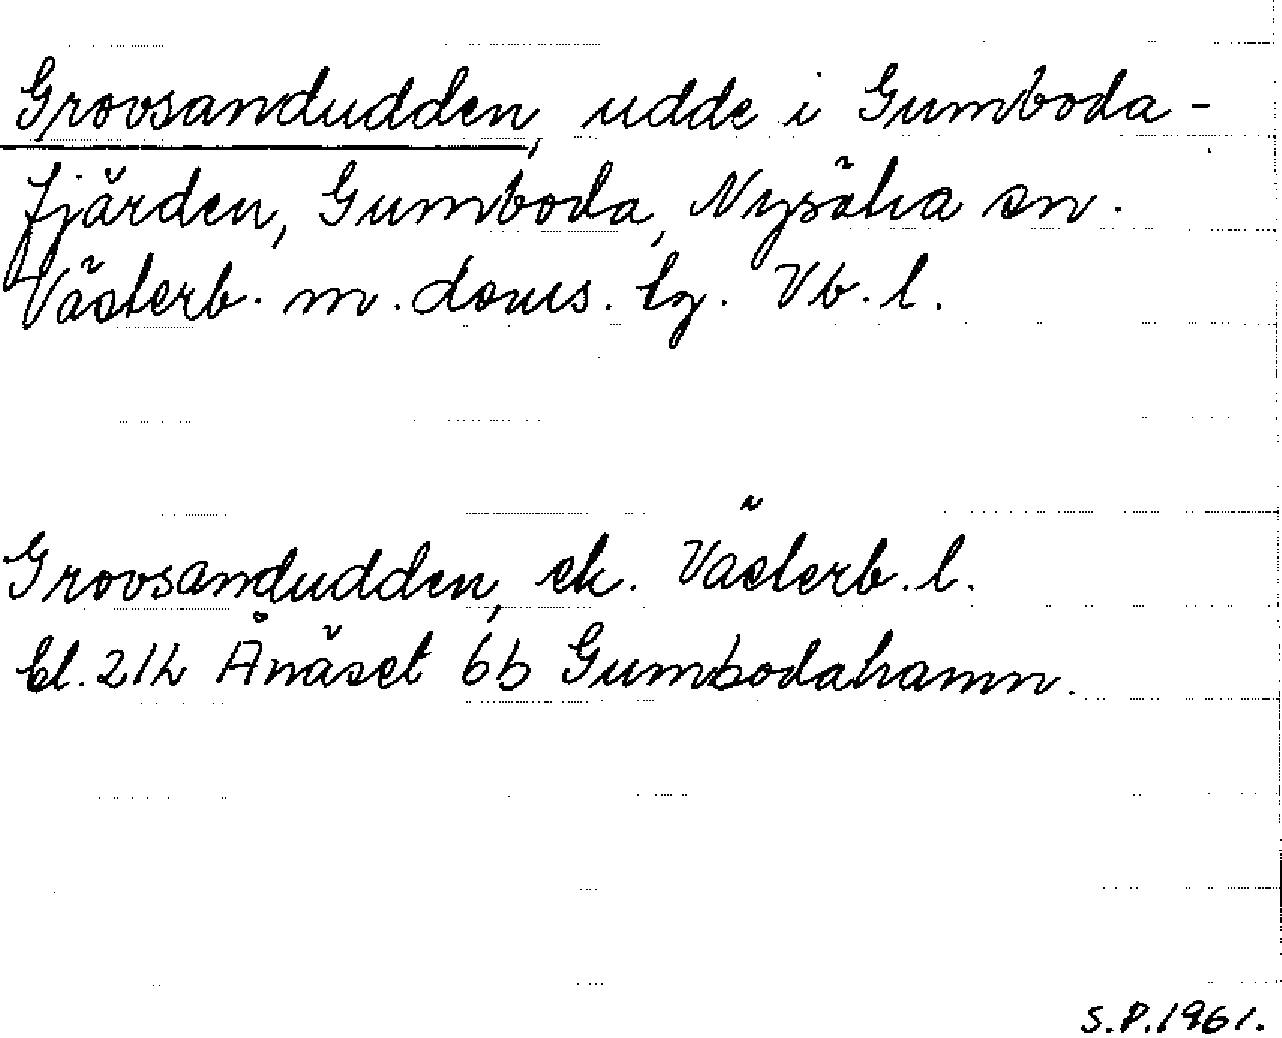 Grovsandudden, udde i Gumboda-
fjärden, Gumboda, Nysätra sn.
Västerb. m. doms. lg. Vb. l.
Grovsandudden, ek. Västerb. l.
bl. 21L Ånäset 6b Gumbodahamn.
S.P. 1961.